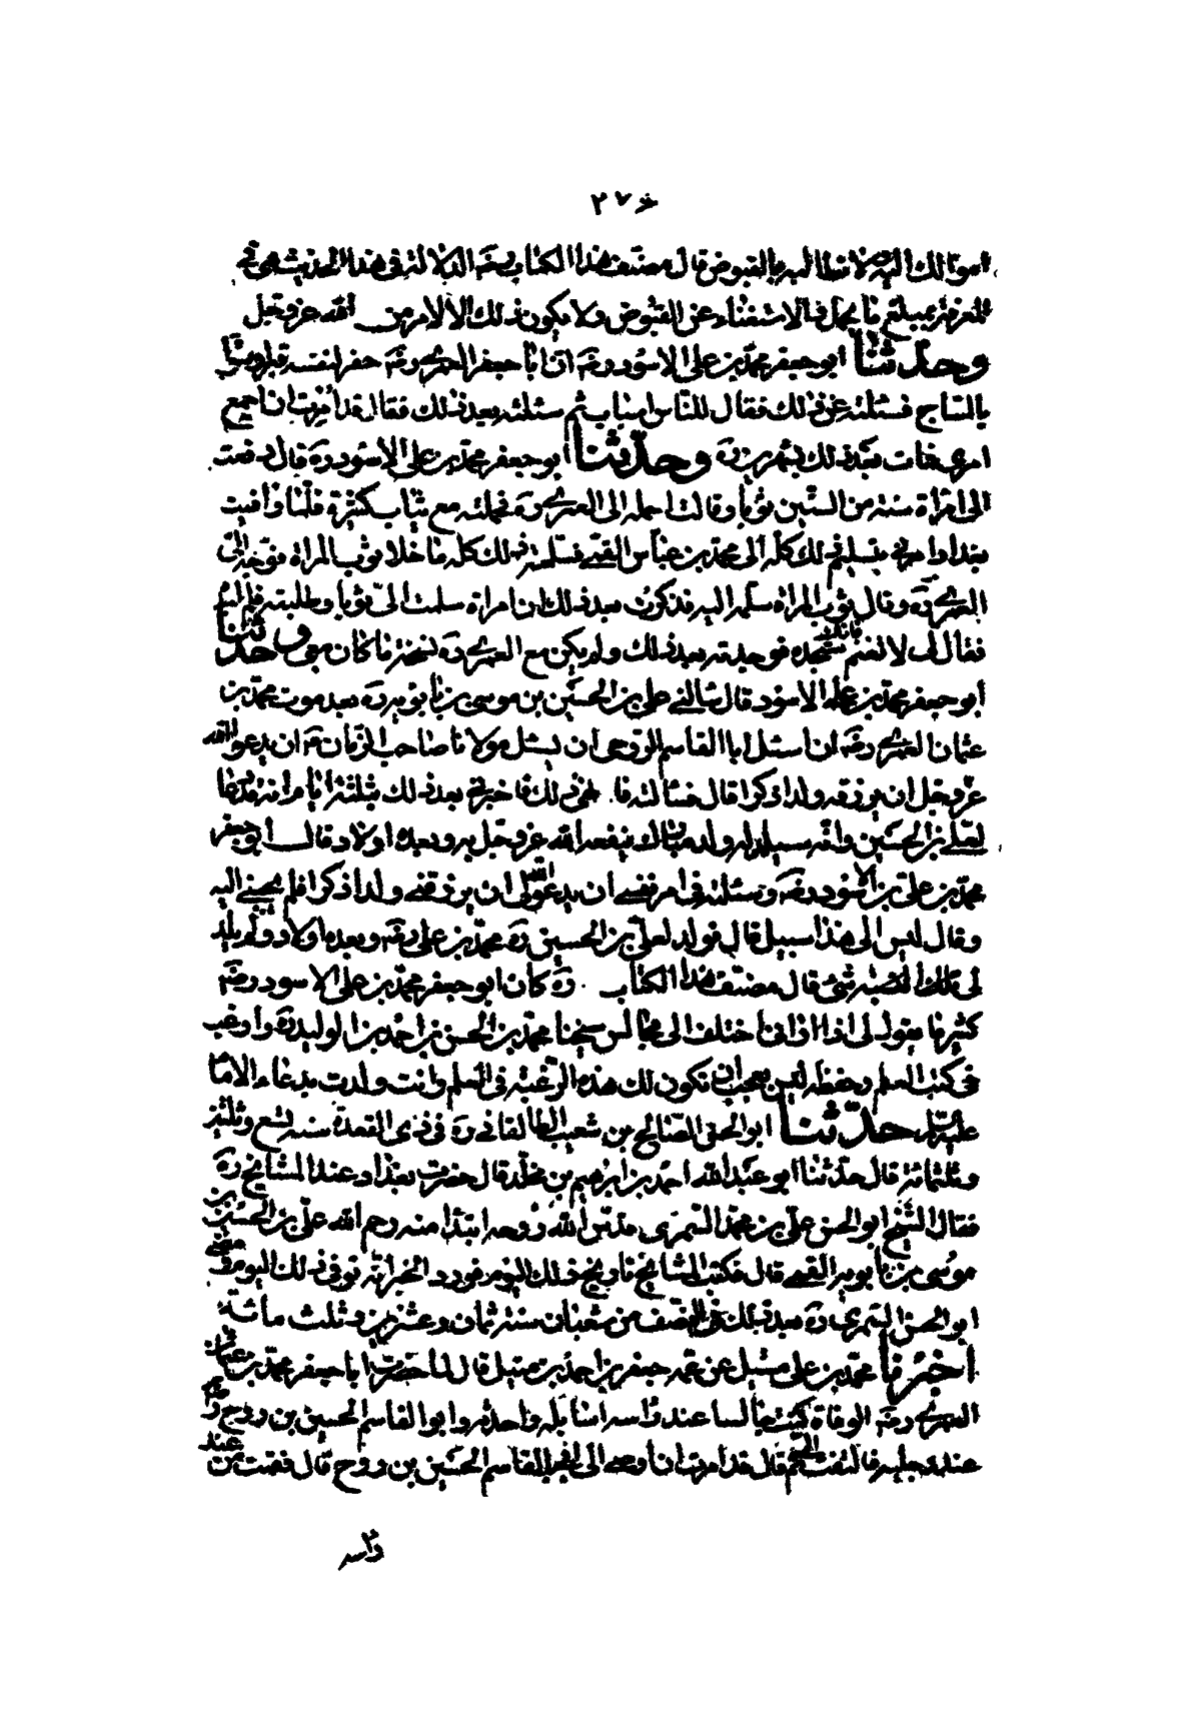 ٢٧٦
اموالك اليه ولا تطالبه بالقبوض قال مصنف هذا الكتاب رضه الدلالة فى هذا الحديث هى فى
المعرفة بمبلغ ما يحمل فيه الاستغناء عن القبوض ولا يكون ذلك الا لامر من الله عز وجل
وحدّثنا ابو جعفر محمّد بن على الاسود رضه انّ ابا جعفر العمرى رضه حفر لنفسه قبرا وسوّاه
بالساج فسئلته عن ذلك فقال للنّاس اسباب ثم سئلته بعد ذلك فقال قد أمرت ان اجمع
امرى فمات بعد ذلك بشهرين ره وحدّثنا ابو جعفر محمّد بن على الاسود ره قال دفعت
الى امراة سنة من السنين ثوبا وقالت احمله الى العمرى ره فحملته مع ثياب كثيرة فلمّا وافيت
بغداد امرنى بتسليم ذلك كلّه الى محمد بن عباس القمى فسلمته ذلك كله ما خلا ثوب المراة فوجه الىّ
العمرى ره وقال ثوب المراة سلمه اليه فذكرت بعد ذلك ان امراة سلمت الىّ ثوبا وطلبته فلم اجده
فقال لى لا تغتم فانك ستجده فوجدته بعد ذلك ولم يكن مع العمرى ره نسخة ما كان معى وحدّثنا
ابو جعفر محمّد بن على الاسود قال سالنى على بن الحسين بن موسى بن بابويه ره بعد موت محمّد بن
عثمان العمرى رضه ان اسئل ابا القاسم الروحى ان يسئل مولانا صاحب الزمان ع ان يدعو الله
عز وجل ان يرزقه ولدا ذكرا قال فسالته فانهى ذلك فاخبرنى بعد ذلك بثلثة ايام انه قد دعا
لعلى بن الحسين وانّه سيولد له ولد مبارك ينفعه الله عز وجل به وبعده اولاد قال ابو جعفر
محمّد بن علىّ الاسود رضه وسئلته فى امر نفسى ان يدعو الله لى ان يرزقنى ولدا ذكرا فلم يجبنى اليه
وقال ليس الى هذا سبيل قال فولد لعلىّ بن الحسين ره محمّد بن على رضه وبعده اولاد ولم يولد
لى تلك السنة شىء قال مصنف هذا الكتاب ره كان ابو جعفر محمّد بن على الاسود رضه
كثيرا ما يقول لى اذا رانى اختلف الى مجالس شيخنا محمّد بن الحسن بن احمد بن الوليد ره وارغب
فى كتب العلم وحفظه ليس بعجب ان تكون لك هذه الرّغبة فى العلم وانت ولدت بدعاء الامام
عليه السلم حدّثنا ابو الحسن الصالح بن شعيب الطالقانى ره فى ذى القعدة سنة تسع وثلثين
وثلثمائة قال حدّثنا ابو عبد الله احمد بن ابرهيم بن مخلد قال حضرت بغداد عند المشايخ ره
فقال الشّيخ ابو الحسن علىّ بن محمّد السّمرى قدّس الله روحه ابتداء منه رحم الله علىّ بن الحسين بن
موسى بن بابويه القمى قال فكتب المشايخ تاريخ ذلك اليوم فورد الخبر انّه توفى ذلك اليوم ومضى
ابو الحسن السّمرى ره بعد ذلك فى النّصف من شعبان سنة ثمان وعشرين وثلث مائة
اخبرنا محمّد بن على متيل عن عمه جعفر بن احمد بن متيل قال لمّا حضرت ابا جعفر محمّد بن عثمان
العمرى رضه الوفاة كنت جالسا عند راسه اسائله واحدثه وابو القاسم الحسين بن روح ره
عند رجليه فالتفت الىّ ثم قال قد امرت ان اوصى الى ابى القاسم الحسين بن روح قال فقمت من عند
راسه